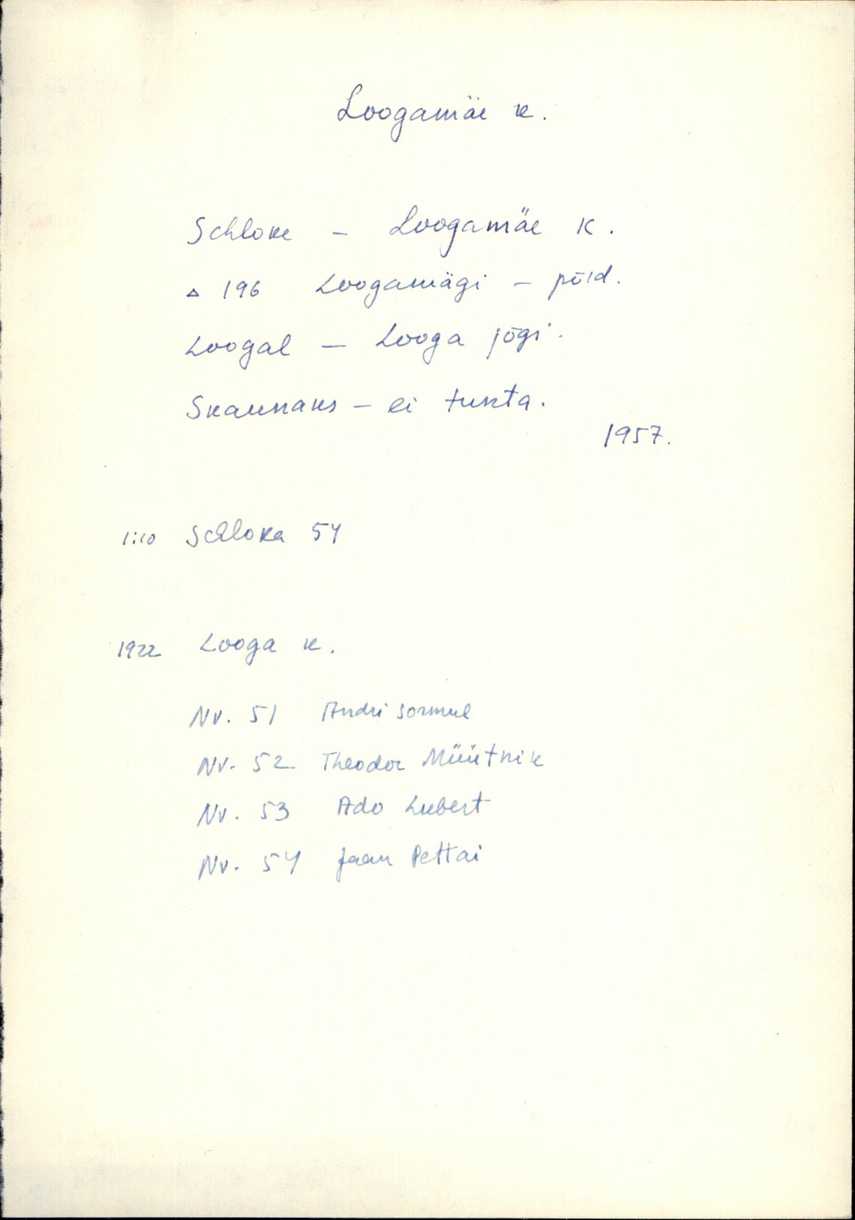 Loogamäe k.
Schloke – Loogamäe k.
△ 196 Loogamägi – põld.
Loogal – Looga jõgi.
Skaunaks – ei tunta.
1957.
1:10 Schloka 54
1922 Looga k.
Nr. 51 Andri Sormul
Nr. 52 Theodor Müütnik
Nr. 53 Ado Lubert
Nr. 54 Jaan Pettai